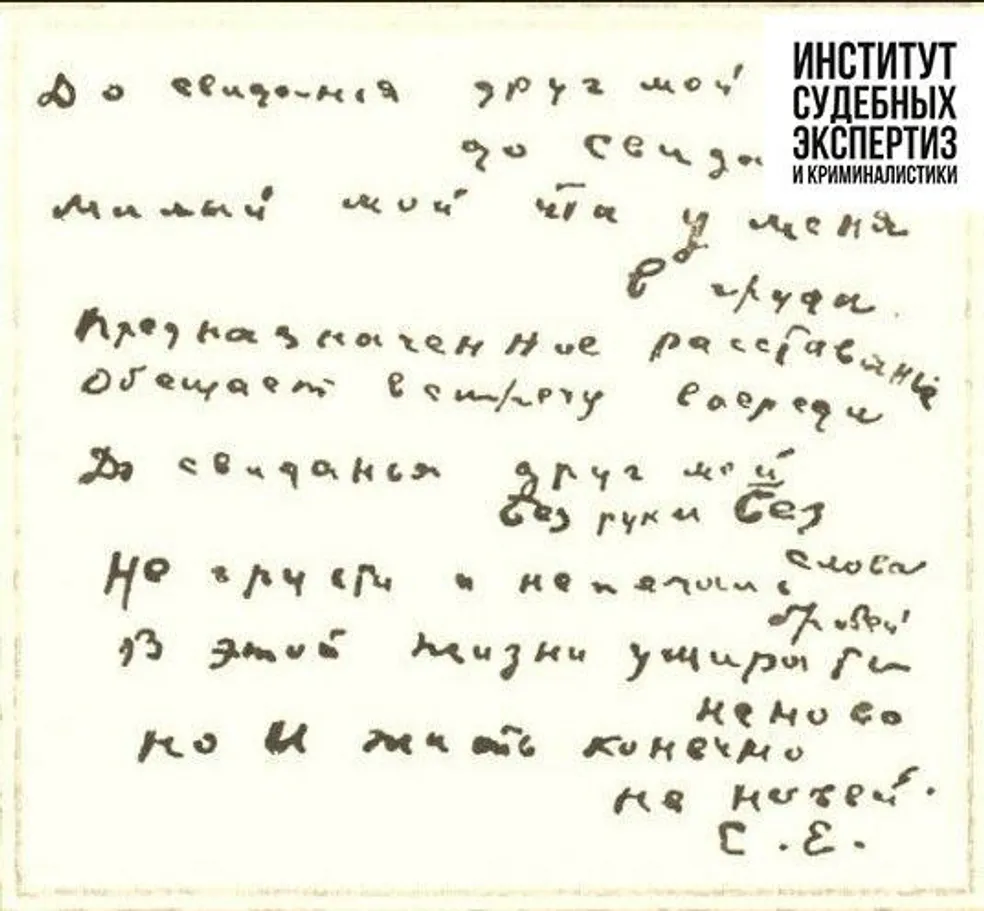 До свиданья друг мой
до свида
милый мой ты у меня
в груди.
Предназначенное расставанье
Обещает встречу впереди
До свиданья друг мой
без руки без
слова
Не грусти и не печаль
бровей
В этой жизни умирать
не ново
но и жить конечно
не новей.
С.Е.
ИНСТИТУТ
СУДЕБНЫХ
ЭКСПЕРТИЗ
И КРИМИНАЛИСТИКИ